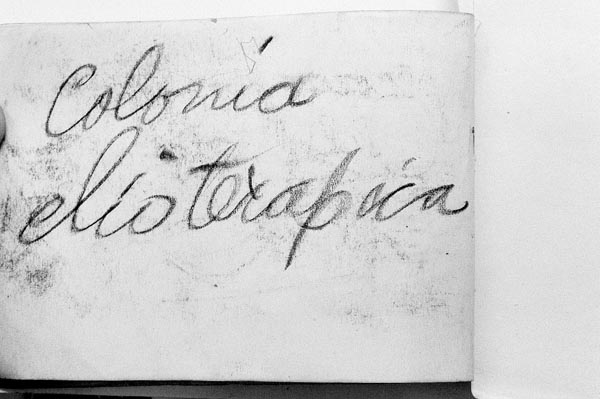 Colonia
elioterapica